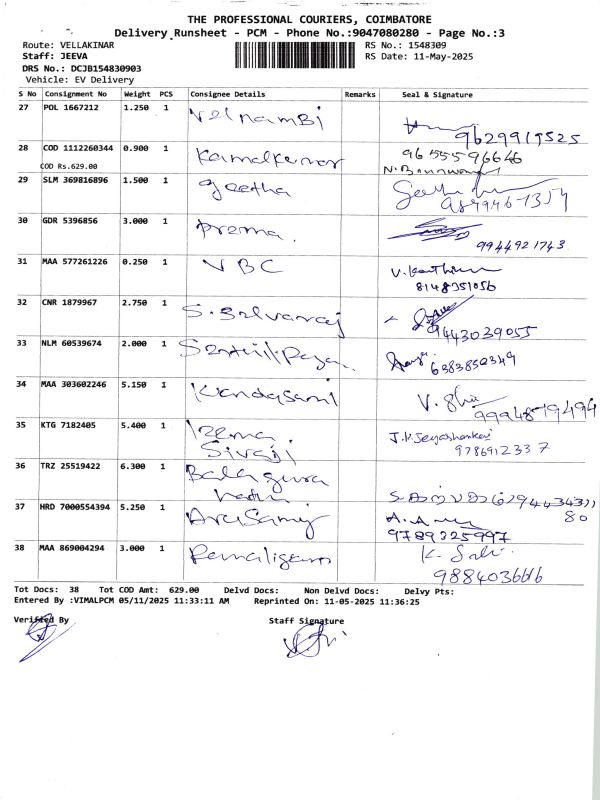 THE PROFESSIONAL COURIERS, COIMBATORE
Delivery Runsheet - PCM - Phone No.:9047080280 - Page No.:3
Route: VELLAKINAR RS No.: 1548309
Staff: JEEVA RS Date: 11-May-2025
DRS No.: DCJB154830903
Vehicle: EV Delivery
S No Consignment No Weight PCS Consignee Details Remarks Seal & Signature
27 POL 1667212 1.250 1 Velnambi
9629919525
28 COD 1112260344 0.900 1 Kamalkumar 9655596646
COD Rs.629.00
29 SLM 369816896 1.500 1 geetha
30 GDR 5396856 3.000 1 Prema.
9944921743
31 MAA 577261226 0.250 1 VBC
8148351056
32 CNR 1879967 2.750 1 S. Selvaraj
9443039055
33 NLM 60539674 2.000 1
6383850349
34 MAA 303602246 5.150 1 Kandasami
9994879494
35 KTG 7182405 5.400 1 J.K Jeyashankar
Sivaji 9786912337
36 TRZ 25519422 6.300 1 Balaguru
80
37 HRD 7000554394 5.250 1 Arusamy
9789325997
38 MAA 869004294 3.000 1 Ramaligam
9884036616
Tot Docs: 38 Tot COD Amt: 629.00 Delvd Docs: Non Delvd Docs: Delvy Pts:
Entered By :VIMALPCM 05/11/2025 11:33:11 AM Reprinted On: 11-05-2025 11:36:25
Verified By Staff Signature